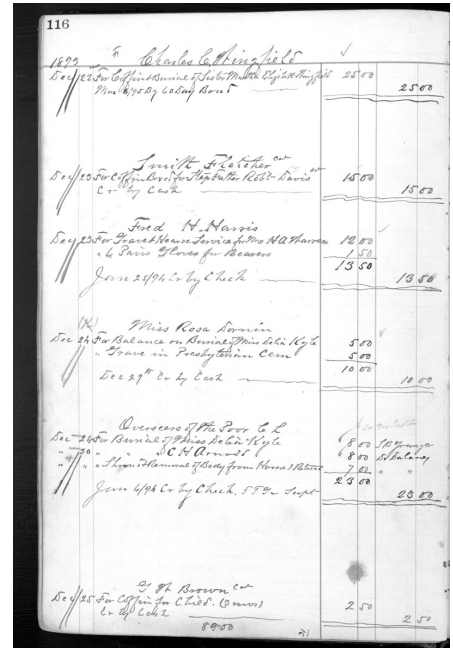 116
1893 Charles C. Wingfield
Dec 22 For Coffin & Burial of Sister Mrs Elizth Wingfield 25 00
Mar 6/95 By 60 Day Bond 25 00
Smith Fletcher col
Dec 23 For Coffin & Bx for Step Father Robt Davis col 15 00
Cr by Cash 15 00
Fred H. Harris
Dec 23 For Grave & Hearse Service for Mrs H A Warren 12 00
" 6 Pairs Gloves for Bearers 1 50
13 50
Jan 25/94 Cr by Check 13 50
Miss Rosa Dornin
Dec 24 For Balance on Burial of Miss Delia Kyle 5 00
" Grave in Presbyterian Cem 5 00
10 00
Dec 29th Cr by Cash 10 00
Overseers of the Poor C L
Dec 24 For Burial of Miss Delia Kyle 8 00
" 30 " " " C H Arnold 8 00 Dr Dulaney
" " " Shroud & Removal of Body from Home 7 00 " "
23 00
Jan 6/94 Cr by Check Supt 23 00
Brown col
Dec 25 For Coffin for Child 2 50
Cr by Cash 2 50
89.00